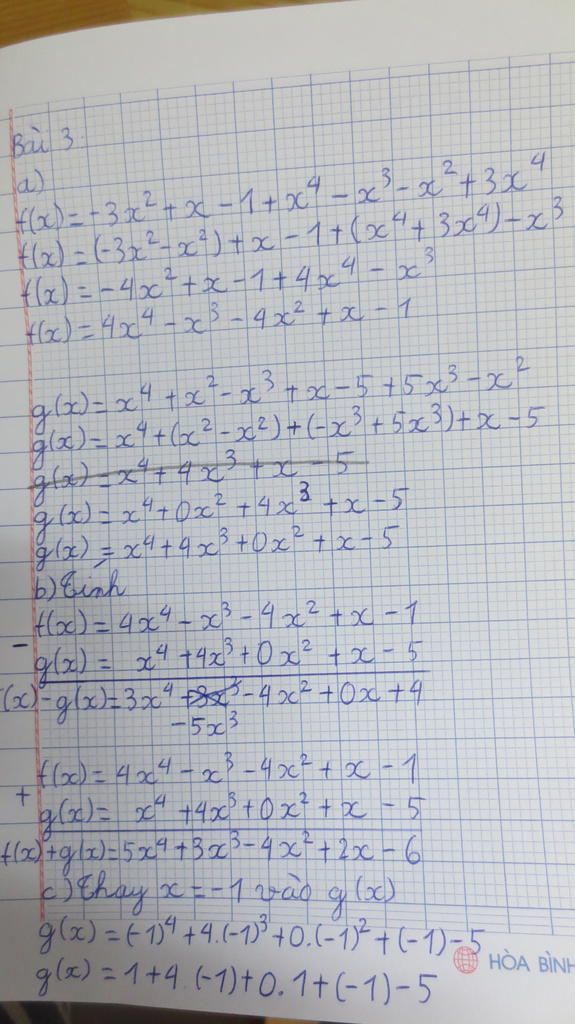 Bài 3:
a)
f(x) = -3x² + x - 1 + x⁴ - x³ - x² + 3x⁴
f(x) = (-3x² - x²) + x - 1 + (x⁴ + 3x⁴) - x³
f(x) = -4x² + x - 1 + 4x⁴ - x³
f(x) = 4x⁴ - x³ - 4x² + x - 1
g(x) = x⁴ + x² - x³ + x - 5 + 5x³ - x²
g(x) = x⁴ + (x² - x²) + (-x³ + 5x³) + x - 5
g(x) = x⁴ + 4x³ + x - 5
g(x) = x⁴ + 0x² + 4x³ + x - 5
g(x) = x⁴ + 4x³ + 0x² + x - 5
b) Tính
f(x) = 4x⁴ - x³ - 4x² + x - 1
-
g(x) = x⁴ + 4x³ + 0x² + x - 5
(x) - g(x) = 3x⁴ +3x³ - 4x² + 0x + 4
-5x³
f(x) = 4x⁴ - x³ - 4x² + x - 1
+
g(x) = x⁴ + 4x³ + 0x² + x - 5
f(x) + g(x) = 5x⁴ + 3x³ - 4x² + 2x - 6
c) Thay x = -1 vào g(x)
g(x) = (-1)⁴ + 4.(-1)³ + 0.(-1)² + (-1) - 5
HÒA BÌNH
g(x) = 1 + 4.(-1) + 0.1 + (-1) - 5